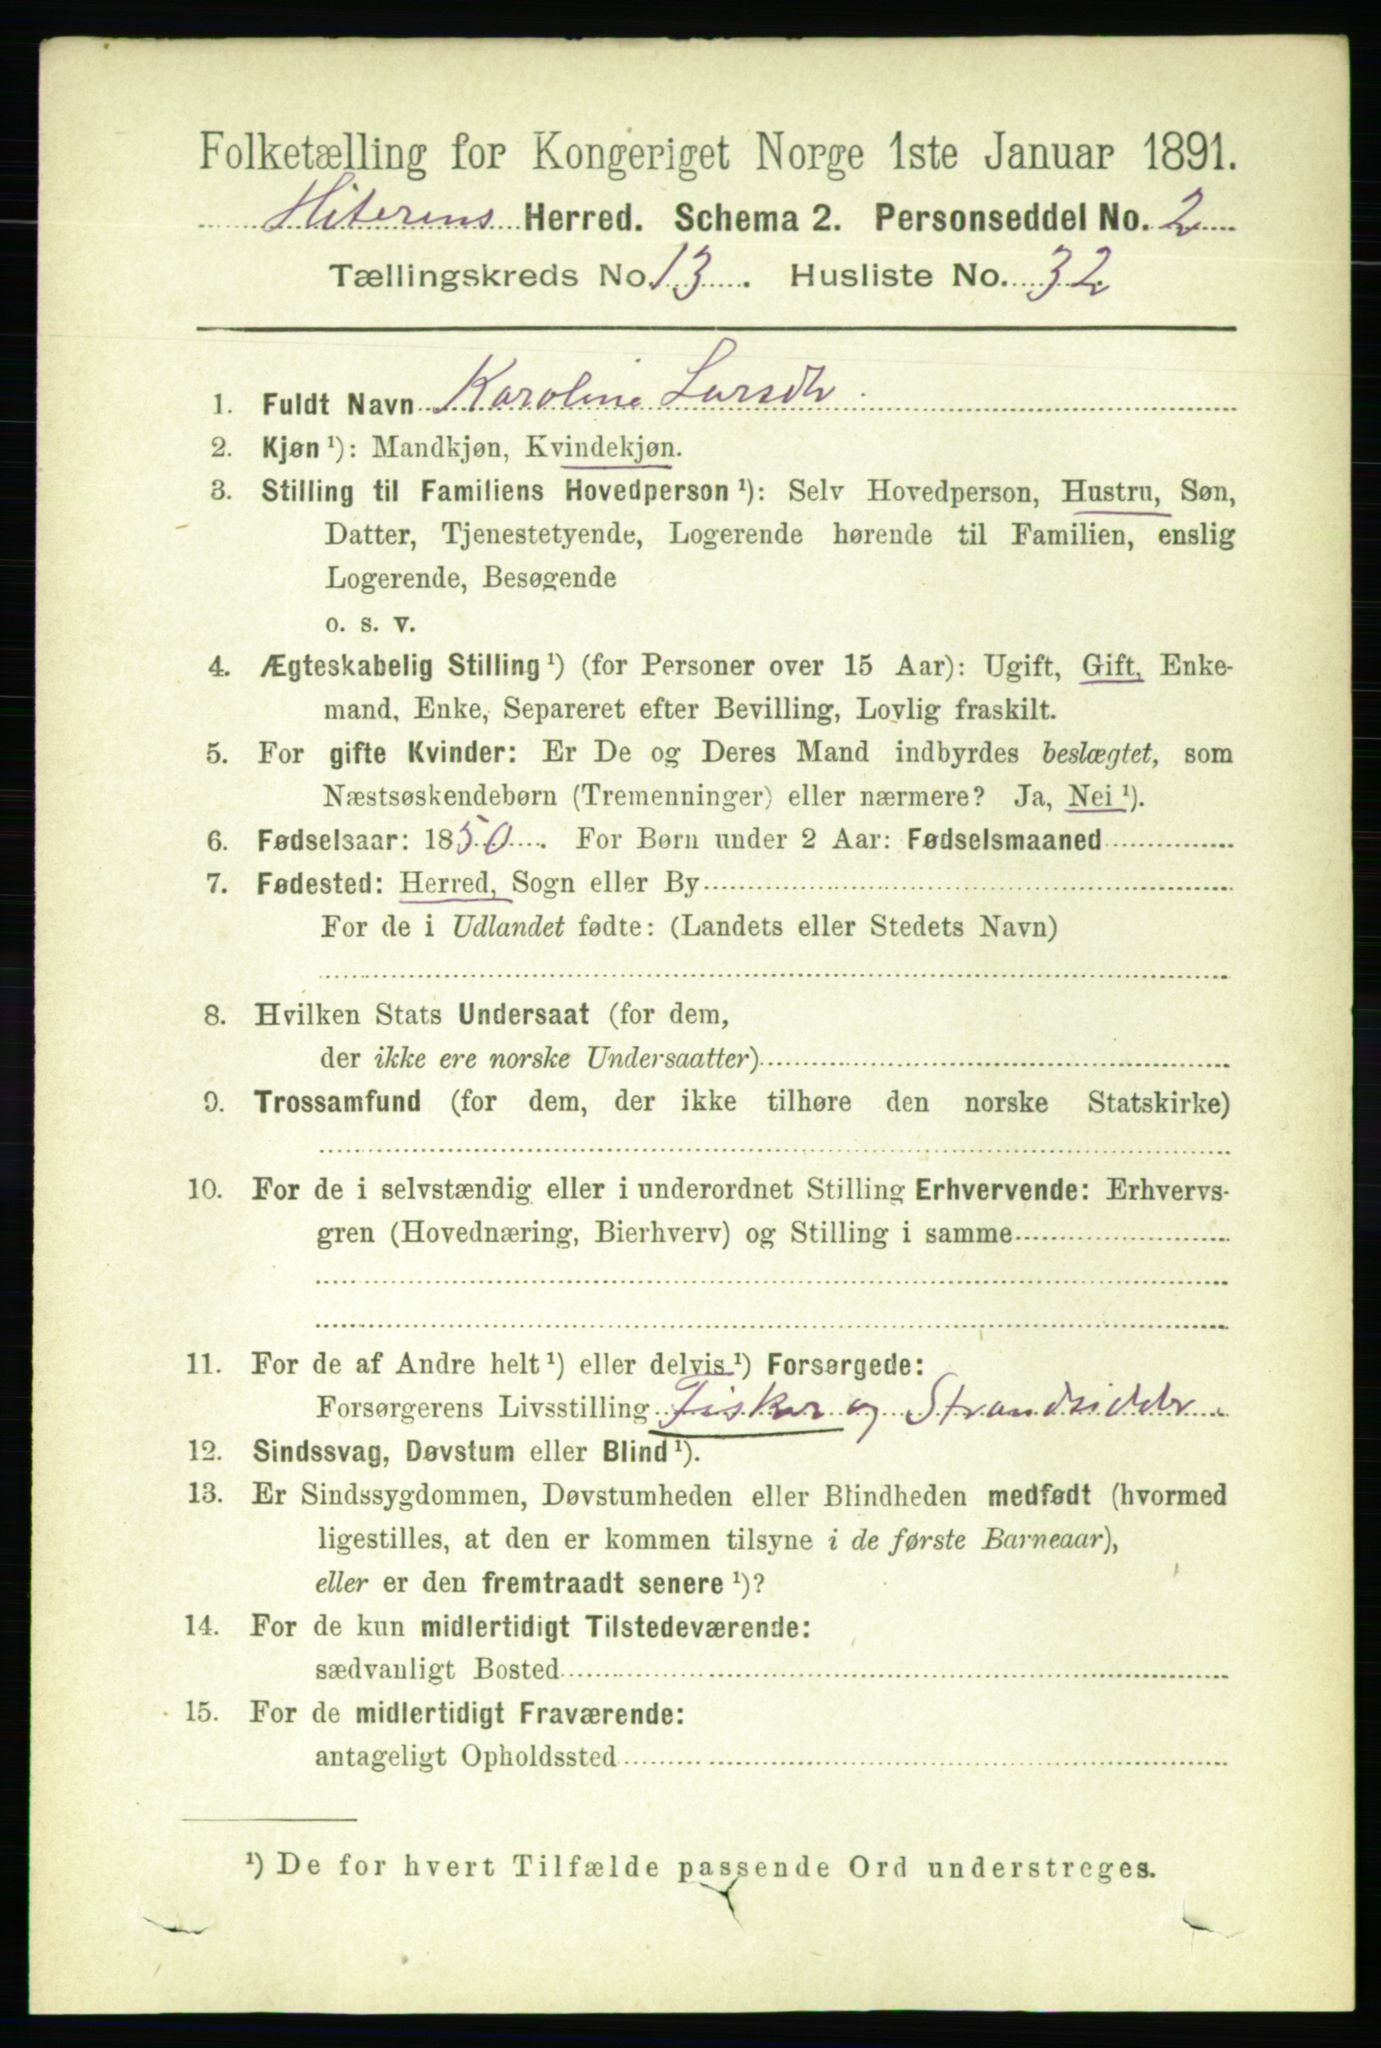 Folketælling for Kongeriget Norge 1ste Januar 1891.
Hiterens Herred. Schema 2. Personseddel No. 2
Tællingskreds No. 13. Husliste No. 32
1. Fuldt Navn Karoline Larsdtr
2. Kjøn ¹): Mandkjøn, Kvindekjøn.
3. Stilling til Familiens Hovedperson ¹): Selv Hovedperson, Hustru, Søn,
Datter, Tjenestetyende, Logerende hørende til Familien, enslig
Logerende, Besøgende
o. s. v.
4. Ægteskabelig Stilling ¹) (for Personer over 15 Aar): Ugift, Gift, Enke-
mand, Enke, Separeret efter Bevilling, Lovlig fraskilt.
5. For gifte Kvinder: Er De og Deres Mand indbyrdes beslægtet, som
Næstsøskendebørn (Tremenninger) eller nærmere? Ja, Nei ¹).
6. Fødselsaar: 1850. For Børn under 2 Aar: Fødselsmaaned
7. Fødested: Herred, Sogn eller By
For de i Udlandet fødte: (Landets eller Stedets Navn)
8. Hvilken Stats Undersaat (for dem,
der ikke ere norske Undersaatter)
9. Trossamfund (for dem, der ikke tilhøre den norske Statskirke)
10. For de i selvstændig eller i underordnet Stilling Erhvervende: Erhvervs-
gren (Hovednæring, Bierhverv) og Stilling i samme
11. For de af Andre helt ¹) eller delvis ¹) Forsørgede:
Forsørgerens Livsstilling Fisker og Strandsidder
12. Sindssvag, Døvstum eller Blind ¹).
13. Er Sindssygdommen, Døvstumheden eller Blindheden medfødt (hvormed
ligestilles, at den er kommen tilsyne i de første Barneaar),
eller er den fremtraadt senere ¹)?
14. For de kun midlertidigt Tilstedeværende:
sædvanligt Bosted
15. For de midlertidigt Fraværende:
antageligt Opholdssted
¹) De for hvert Tilfælde passende Ord understreges.